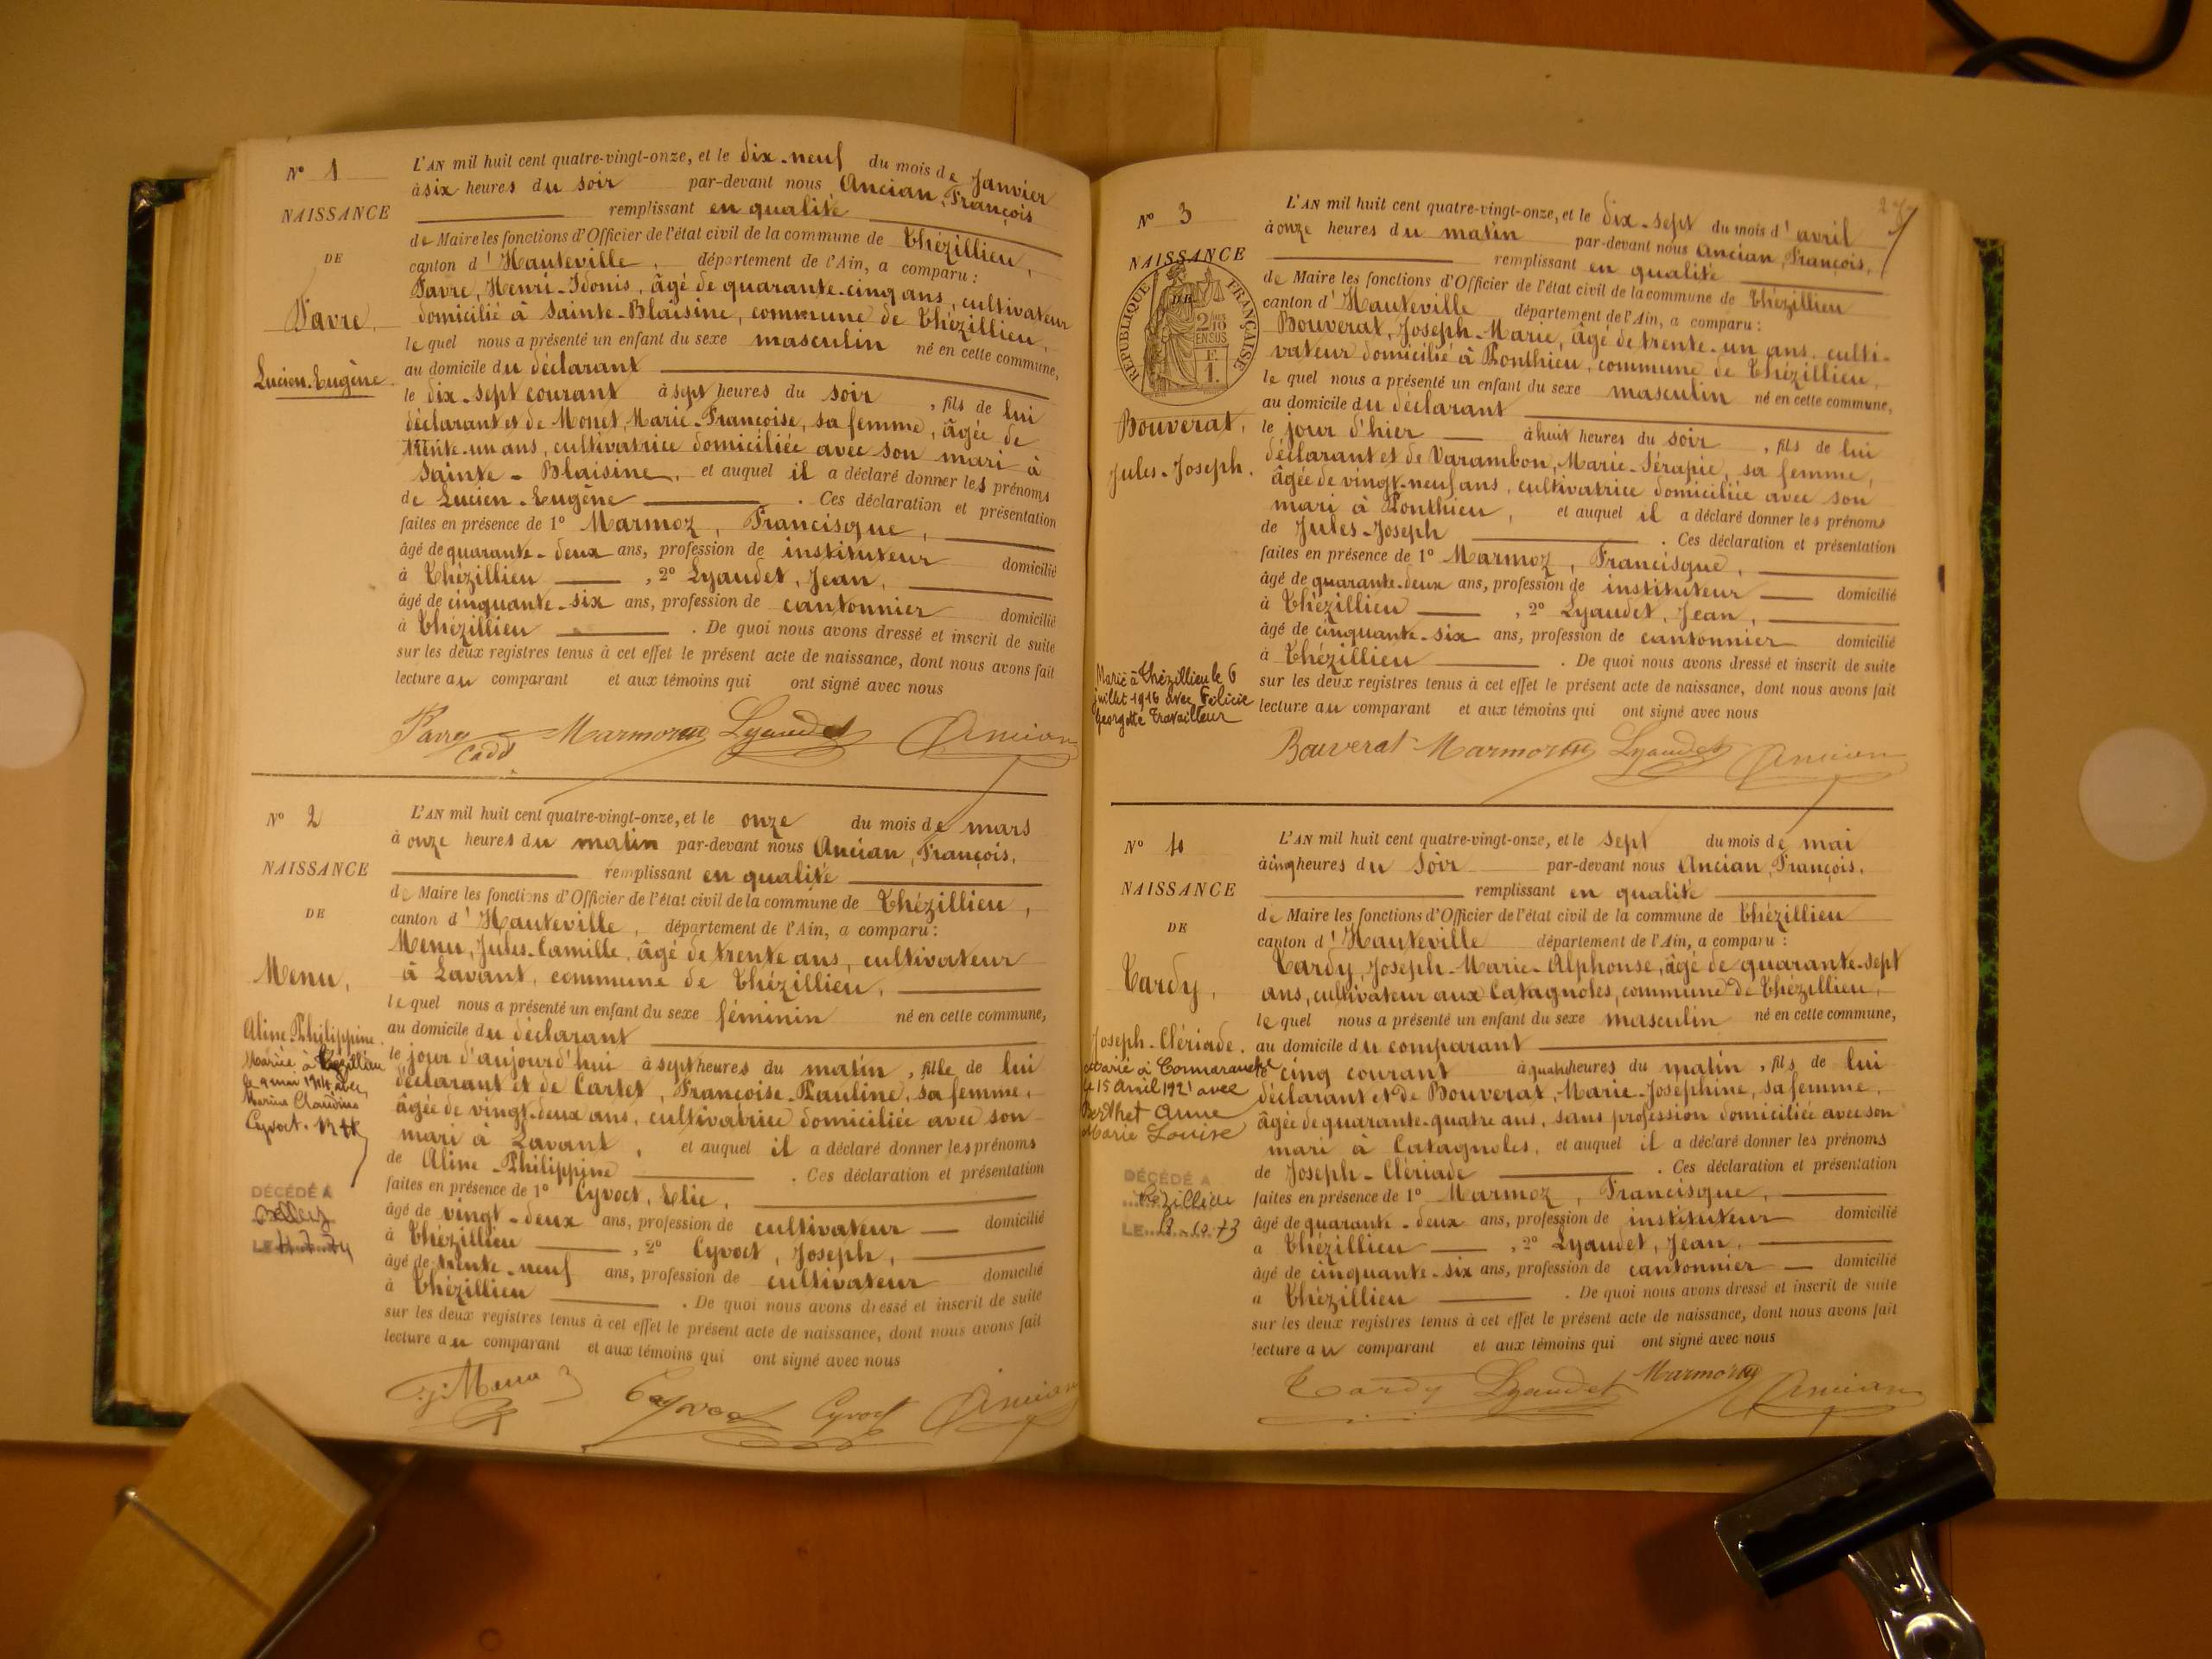 N° 1
NAISSANCE
DE
Favre,
Lucien-Eugène
L'AN mil huit cent quatre-vingt-onze, et le dix-neuf du mois de Janvier
à six heures du soir par-devant nous Ancian, François
remplissant en qualité
de Maire les fonctions d'Officier de l'état civil de la commune de Thézillieu,
canton d'Hauteville, département de l'Ain, a comparu :
Favre, Henri-Idonis, âgé de quarante-cinq ans, cultivateur
domicilié à Sainte-Blaisine, commune de Thézillieu,
lequel nous a présenté un enfant du sexe masculin né en cette commune,
au domicile du déclarant
le dix-sept courant à sept heures du soir, fils de lui
déclarant et de Monet, Marie-Françoise, sa femme, âgée de
trente-un ans, cultivatrice domiciliée avec son mari à
Sainte-Blaisine, et auquel il a déclaré donner les prénoms
de Lucien-Eugène. Ces déclaration et présentation
faites en présence de 1° Marmoz, Francisque,
âgé de quarante-deux ans, profession de instituteur domicilié
à Thézillieu, 2° Lyaudet, Jean,
âgé de cinquante-six ans, profession de cantonnier domicilié
à Thézillieu. De quoi nous avons dressé et inscrit de suite
sur les deux registres tenus à cet effet le présent acte de naissance, dont nous avons fait
lecture au comparant et aux témoins qui ont signé avec nous
Favre Marmoz Lyaudet Ancian
N° 2
NAISSANCE
DE
Menu,
Aline-Philippine.
Mariée à Thézillieu
le 9 mai 1914 avec
Marius Claudius
Cyvoct.
DÉCÉDÉ A
Belley
LE
L'AN mil huit cent quatre-vingt-onze, et le onze du mois de mars
à onze heures du matin par-devant nous Ancian, François,
remplissant en qualité
de Maire les fonctions d'Officier de l'état civil de la commune de Thézillieu,
canton d'Hauteville, département de l'Ain, a comparu :
Menu, Jules-Camille, âgé de trente ans, cultivateur
à Lavant, commune de Thézillieu,
lequel nous a présenté un enfant du sexe féminin né en cette commune,
au domicile du déclarant
le jour d'aujourd'hui à sept heures du matin, fille de lui
déclarant et de Cartet, Françoise-Pauline, sa femme,
âgée de vingt-deux ans, cultivatrice domiciliée avec son
mari à Lavant, et auquel il a déclaré donner les prénoms
de Aline-Philippine. Ces déclaration et présentation
faites en présence de 1° Cyvoct, Elie,
âgé de vingt-deux ans, profession de cultivateur domicilié
à Thézillieu, 2° Cyvoct, Joseph,
âgé de trente-neuf ans, profession de cultivateur domicilié
à Thézillieu. De quoi nous avons dressé et inscrit de suite
sur les deux registres tenus à cet effet le présent acte de naissance, dont nous avons fait
lecture au comparant et aux témoins qui ont signé avec nous
J. Menu Cyvoct Cyvoct Ancian
N° 3
NAISSANCE
DE
RÉPUBLIQUE FRANÇAISE
2/10 EN SUS
F.
1.
Bouverat,
Jules-Joseph.
Marié à Thézillieu le 6
juillet 1916 avec Félicie
Georgette Travailleur
L'AN mil huit cent quatre-vingt-onze, et le dix-sept du mois d'avril
à onze heures du matin par-devant nous Ancian, François,
remplissant en qualité
de Maire les fonctions d'Officier de l'état civil de la commune de Thézillieu
canton d'Hauteville département de l'Ain, a comparu :
Bouverat, Joseph-Marie, âgé de trente-un ans, culti-
vateur domicilié à Ponthieu, commune de Thézillieu,
lequel nous a présenté un enfant du sexe masculin né en cette commune,
au domicile du déclarant
le jour d'hier à huit heures du soir, fils de lui
déclarant et de Varambon, Marie-Sérapie, sa femme,
âgée de vingt-neuf ans, cultivatrice domiciliée avec son
mari à Ponthieu, et auquel il a déclaré donner les prénoms
de Jules-Joseph. Ces déclaration et présentation
faites en présence de 1° Marmoz, Francisque,
âgé de quarante-deux ans, profession de instituteur domicilié
à Thézillieu, 2° Lyaudet, Jean,
âgé de cinquante-six ans, profession de cantonnier domicilié
à Thézillieu. De quoi nous avons dressé et inscrit de suite
sur les deux registres tenus à cet effet le présent acte de naissance, dont nous avons fait
lecture au comparant et aux témoins qui ont signé avec nous
Bouverat Marmoz Lyaudet Ancian
N° 4
NAISSANCE
DE
Tardy,
Joseph-Clériade.
Marié à Cormaranche
le 15 Avril 1921 avec
Berthet Anne
Marie Louise
DÉCÉDÉ A
Thézillieu
LE
L'AN mil huit cent quatre-vingt-onze, et le sept du mois de mai
à cinq heures du soir par-devant nous Ancian, François,
remplissant en qualité
de Maire les fonctions d'Officier de l'état civil de la commune de Thézillieu
canton d'Hauteville département de l'Ain, a comparu :
Tardy, Joseph-Marie-Alphonse, âgé de quarante-sept
ans, cultivateur aux Catagnoles, commune de Thézillieu,
lequel nous a présenté un enfant du sexe masculin né en cette commune,
au domicile du comparant
le cinq courant à quatre heures du matin, fils de lui
déclarant et de Bouverat, Marie-Joséphine, sa femme,
âgée de quarante-quatre ans, sans profession domiciliée avec son
mari à Catagnoles, et auquel il a déclaré donner les prénoms
de Joseph-Clériade. Ces déclaration et présentation
faites en présence de 1° Marmoz, Francisque,
âgé de quarante-deux ans, profession de instituteur domicilié
à Thézillieu, 2° Lyaudet, Jean,
âgé de cinquante-six ans, profession de cantonnier domicilié
à Thézillieu. De quoi nous avons dressé et inscrit de suite
sur les deux registres tenus à cet effet le présent acte de naissance, dont nous avons fait
lecture au comparant et aux témoins qui ont signé avec nous
Tardy Lyaudet Marmoz Ancian